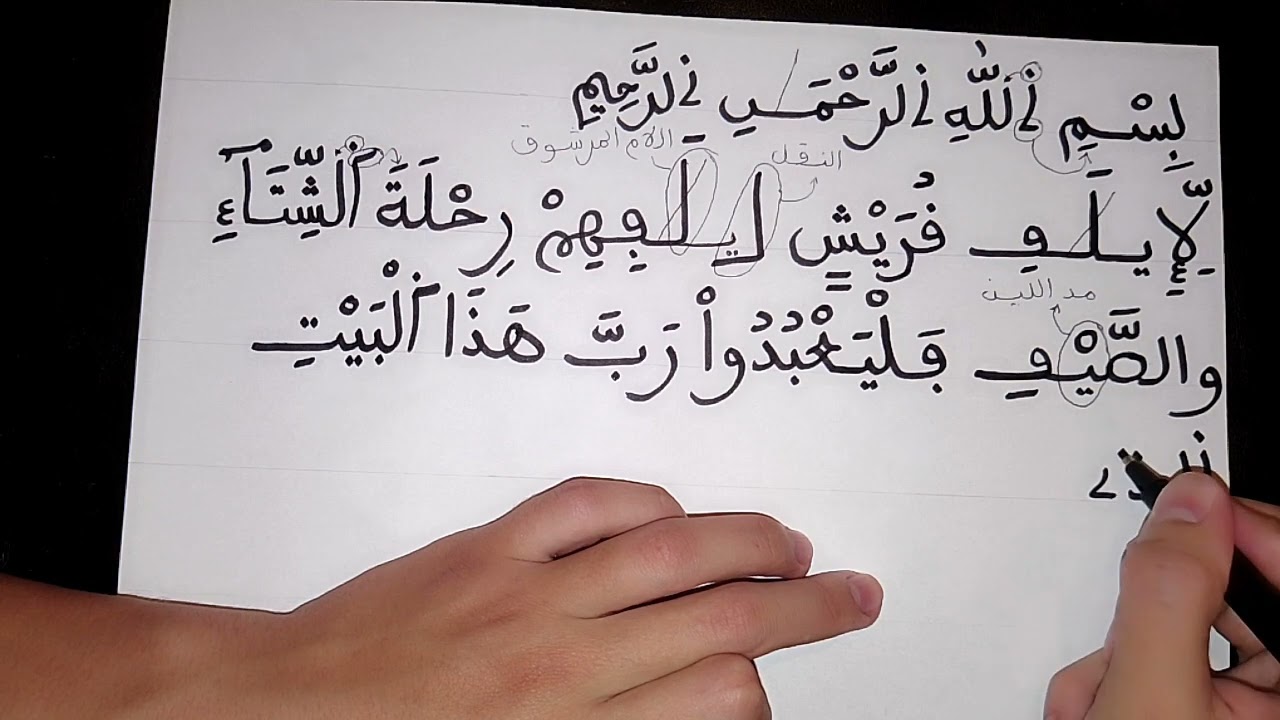 بِسْمِ اِ۬للَّهِ اِ۬لرَّحْمَٰنِ اِ۬لرَّحِيمِ
اللام المرشوق
النقل
لِإِيلَٰفِ قُرَيْشٍ اِۦلَٰفِهِمْ رِحْلَةَ اَ۬لشِّتَآءِ
مد اللين
والصَّيْفِ فَلْيَعْبُدُواْ رَبَّ هَذَا اَ۬لْبَيْتِ